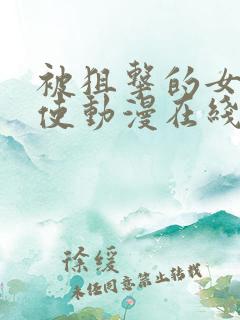 被狙擊的女
使動漫在綫
徐缓
未经同意禁止转载